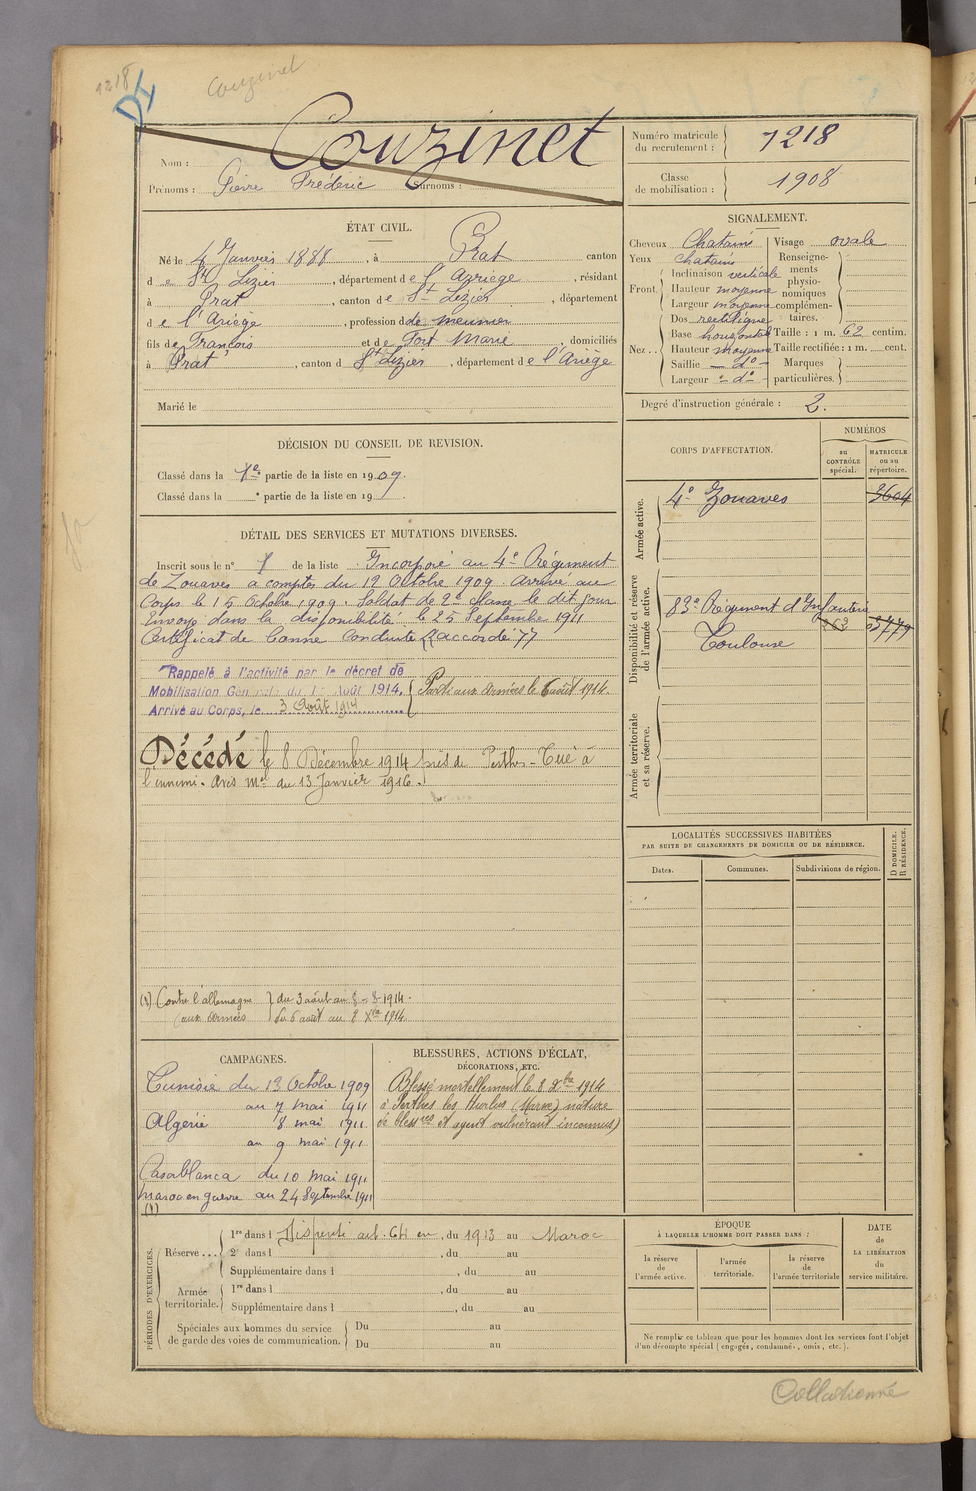 1218
Couzinet
Nom : Couzinet
Prénoms : Pierre Frédéric Surnoms :
Numéro matricule du recrutement : 1218
Classe de mobilisation : 1908
ÉTAT CIVIL.
Né le 4 Janvier 1888, à Prat canton
de St Lizier, département de l'Arriège, résidant
à Prat, canton de St Lizier, département
de l'Ariège, profession de de meunier
fils de François et de Fort Marie, domiciliés
à Prat, canton d St Lizier, département de l'Ariège
Marié le
SIGNALEMENT.
Cheveux Chatains
Yeux Chatains
Front. Inclinaison verticale
Hauteur moyenne
Largeur moyenne
Nez.. Dos rectiligne
Base horizontal
Hauteur moyenne
Saillie — do —
Largeur - do -
Visage ovale
Renseignements physionomiques complémentaires.
Taille : 1 m. 62 centim.
Taille rectifiée : 1 m. cent.
Marques particulières.
Degré d'instruction générale : 2.
DÉCISION DU CONSEIL DE REVISION.
Classé dans la 1re partie de la liste en 1909.
Classé dans la e partie de la liste en 19
DÉTAIL DES SERVICES ET MUTATIONS DIVERSES.
Inscrit sous le n° de la liste Incorporé au 4e Régiment
de Zouaves à compter du 12 Octobre 1909. Arrivé au
Corps le 15 Octobre 1909. Soldat de 2e classe le dit jour
Envoyé dans la disponibilité le 25 Septembre 1911
Certificat de bonne conduite accordé
Rappelé à l'activité par le décret de
Mobilisation Générale du 1er Août 1914.
Arrivé au Corps, le 3 Août 1914
Parti aux armées le 6 août 1914.
Décédé le 8 Décembre 1914 près de Perthes - Tué à
l'ennemi. Avis mel du 13 Janvier 1916.
(1) Contre l'allemagne du 3 août au 8-8-1914.
aux armées du 6 août au 8 Xbre 1914.
CORPS D'AFFECTATION.
NUMÉROS
au CONTRÔLE spécial.
MATRICULE ou au répertoire.
Armée active.
4e Zouaves 3604
Disponibilité et réserve de l'armée active.
83e Régiment d'Infanterie
Toulouse
Armée territoriale et sa réserve.
LOCALITÉS SUCCESSIVES HABITÉES
PAR SUITE DE CHANGEMENTS DE DOMICILE OU DE RÉSIDENCE.
Dates.
Communes.
Subdivisions de région.
D DOMICILE.
R RÉSIDENCE.
CAMPAGNES.
Tunisie du 13 Octobre 1909
au 7 mai 1911
Algérie 8 mai 1911
au 9 mai 1911
Casablanca du 10 mai 1911
Maroc en guerre au 24 Septembre 1911
(1)
BLESSURES, ACTIONS D'ÉCLAT,
DÉCORATIONS, ETC.
Blessé mortellement le 8 Xbre 1914
à Perthes les Hurlus (Marne) nature
de blessures et agent vulnérant inconnus)
PÉRIODES D'EXERCICES.
Réserve... 1re dans l Dispensé art. en, du 1913 au Maroc
2e dans l , du au
Supplémentaire dans l , du au
Armée territoriale. 1re dans l , du au
Supplémentaire dans l , du au
Spéciales aux hommes du service de garde des voies de communication. Du au
Du au
ÉPOQUE
À LAQUELLE L'HOMME DOIT PASSER DANS :
la réserve de l'armée active.
l'armée territoriale.
la réserve de l'armée territoriale
DATE
DE
LA LIBÉRATION
du
service militaire.
Ne remplir ce tableau que pour les hommes dont les services font l'objet
d'un décompte spécial (engagés, condamnés, omis, etc.).
Collationné